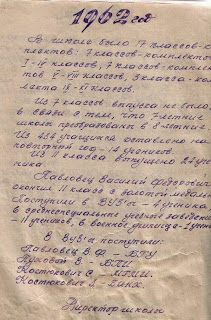 1962 год
В школе было 17 классов-ком-
плектов: 7 классов-комплектов
I-IV классов, 7 классов-комплек-
тов V-VIII классов, 3 класса-ком-
плекта IX-XI классов.
Из 7 классов выпуска не было,
в связи с тем, что 7-летние
школы преобразованы в 8-летние.
Из 454 учащихся оставлено на
повторный год - 14 учеников.
Из 11 класса выпущено 24 уче-
ника.
Павловец Василий Федорович
окончил 11 класс с золотой медалью.
Поступили в ВУЗ'ы - 4 ученика
в среднеспециальные учебные заведения
- 11 учеников, в военное училище - 1 ученик
В ВУЗ'ы поступили:
Павловец В.Ф. - БГУ
Пуховой В. - БПИ
Костюкович С. - МГПИ
Костюкович - БИНХ.
Директор школы